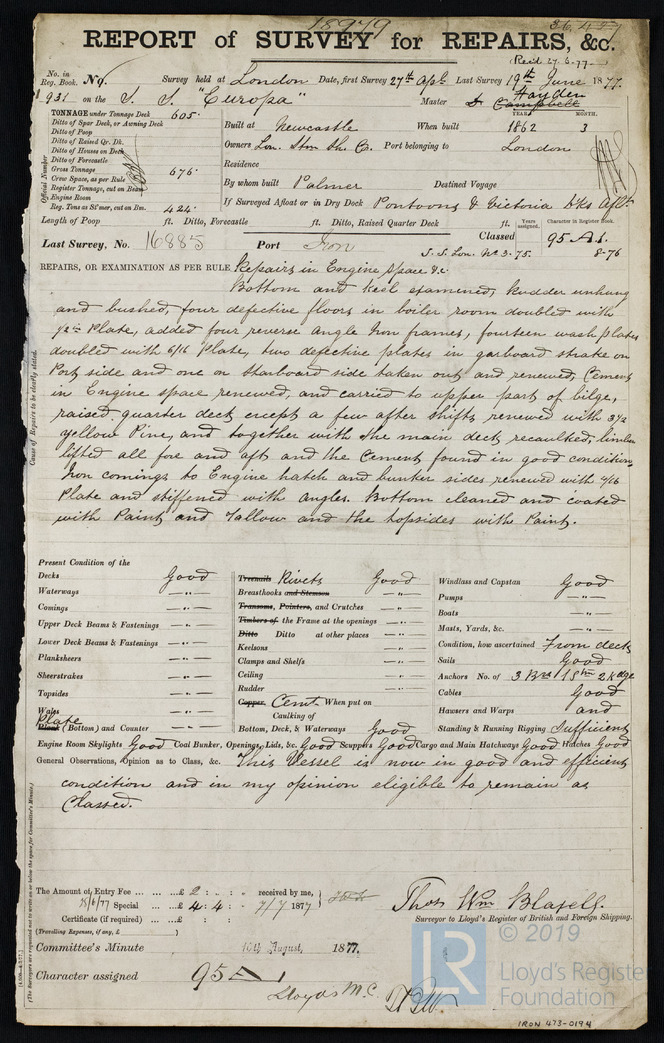 18979
REPORT of SURVEY for REPAIRS, &c.
Rec'd 27-6-77
No. in Reg. Book. No. Survey held at London Date, first Survey 27th Apl. Last Survey 19th June 1877.
931 on the S. S. "Europa" Master D. Campbell Hayden
TONNAGE under Tonnage Deck 605.
Ditto of Spar Deck, or Awning Deck
Ditto of Poop
Ditto of Raised Qr. Dk.
Ditto of Houses on Deck
Ditto of Forecastle
Gross Tonnage 676.
Crew Space, as per Rule
Register Tonnage, cut on Beam
Engine Room
Reg. Tons as St'mer, cut on Bm. 424.
Official Number
YEAR. MONTH.
Built at Newcastle When built 1862 3
Owners Lon. Stm Sh. Co. Port belonging to London
Residence
By whom built Palmer Destined Voyage
If Surveyed Afloat or in Dry Dock Pontoons & Victoria Dks Aflt
Length of Poop ft. Ditto, Forecastle ft. Ditto, Raised Quarter Deck ft. Years assigned. Character in Register Book.
Last Survey, No. 16885 Port Iron Classed 95 A.1.
S. S. Lon. No 3-75. 8-76
REPAIRS, OR EXAMINATION AS PER RULE, Repairs in Engine space &c.
Bottom and keel examined, Rudder unhung
and bushed, four defective floors in boiler room doubled with
Plate, added four reverse angle Iron frames, fourteen wash plates
doubled with 6/16 Plate, two defective plates in garboard strake on
Port side and one on Starboard side taken out and renewed, Cement
in Engine space renewed, and carried to upper part of bilge,
raised quarter deck except a few after shifts renewed with 3½
yellow Pine, and together with the main deck recaulked, limbers
lifted all fore and aft and the Cement found in good condition,
Iron comings to Engine hatch and bunker sides renewed with 7/16
Plate and stiffened with angles. Bottom cleaned and coated
with Paint and Tallow and the topsides with Paint.
Cause of Repairs to be clearly stated.
Present Condition of the
Decks Good
Waterways -"-
Comings -"-
Upper Deck Beams & Fastenings -"-
Lower Deck Beams & Fastenings -"-
Planksheers -"-
Sheerstrakes -"-
Topsides -"-
Wales -"-
Plate
Plank (Bottom) and Counter -"-
Treenails Rivets Good
Breasthooks and Stemson -"-
Transoms, Pointers, and Crutches -"-
Timbers of the Frame at the openings -"-
Ditto Ditto at other places -"-
Keelsons -"-
Clamps and Shelfs -"-
Ceiling -"-
Rudder -"-
Copper Cemt. When put on
Caulking of
Bottom, Deck, & Waterways Good
Windlass and Capstan Good
Pumps -"-
Boats -"-
Masts, Yards, &c. -"-
Condition, how ascertained From deck
Sails Good
Anchors No. of 3 Brs 1 Stm 2 Kedge
Cables Good
Hawsers and Warps and
Standing & Running Rigging Sufficient
Engine Room Skylights Good Coal Bunker, Openings, Lids, &c. Good Scuppers Good Cargo and Main Hatchways Good Hatches Good
General Observations, Opinion as to Class, &c. This Vessel is now in good and efficient
condition and in my opinion eligible to remain as
Classed.
The Amount of Entry Fee ... ... ... £ 2 : . : . received by me,
28/6/77 Special ... ... £ 4 : 4 : . 7/7 1877
Certificate (if required) ... £ : :
(Travelling Expenses, if any, £ )
Thos Wm Blazell.
Surveyor to Lloyd's Register of British and Foreign Shipping.
Committee's Minute 10th August, 1877.
Character assigned 95 A 1
Lloyds M.C.
IRON 473-0194
LR © 2019
Lloyd's Register
Foundation